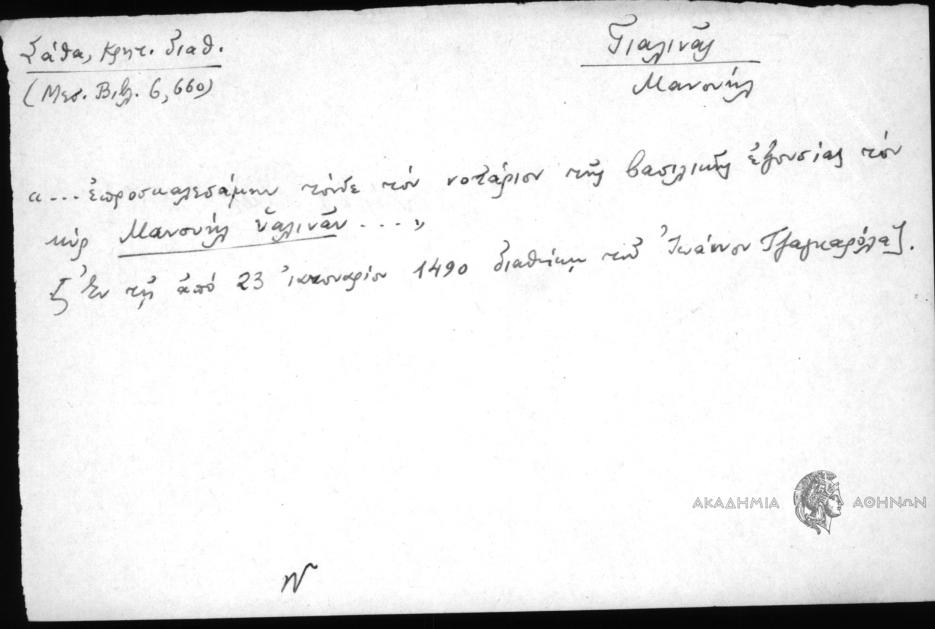 Σάθα, Κρητ. διαθ.
(Μεσ. Βιβ. 6, 660)
Γιαλινᾶς
Μανουήλ
«... ἐπροσκαλεσάμην τόνδε τὸν νοτάριον τῆς βασιλικῆς ἐξουσίας τὸν
κὺρ Μανουήλ ὑαλινᾶν ...»
[Ἐν τῇ ἀπό 23 ἰανουαρίου 1490 διαθήκῃ τοῦ Ἰωάννου Τζαγκαρόλα].
ΑΚΑΔΗΜΙΑ ΑΘΗΝΩΝ